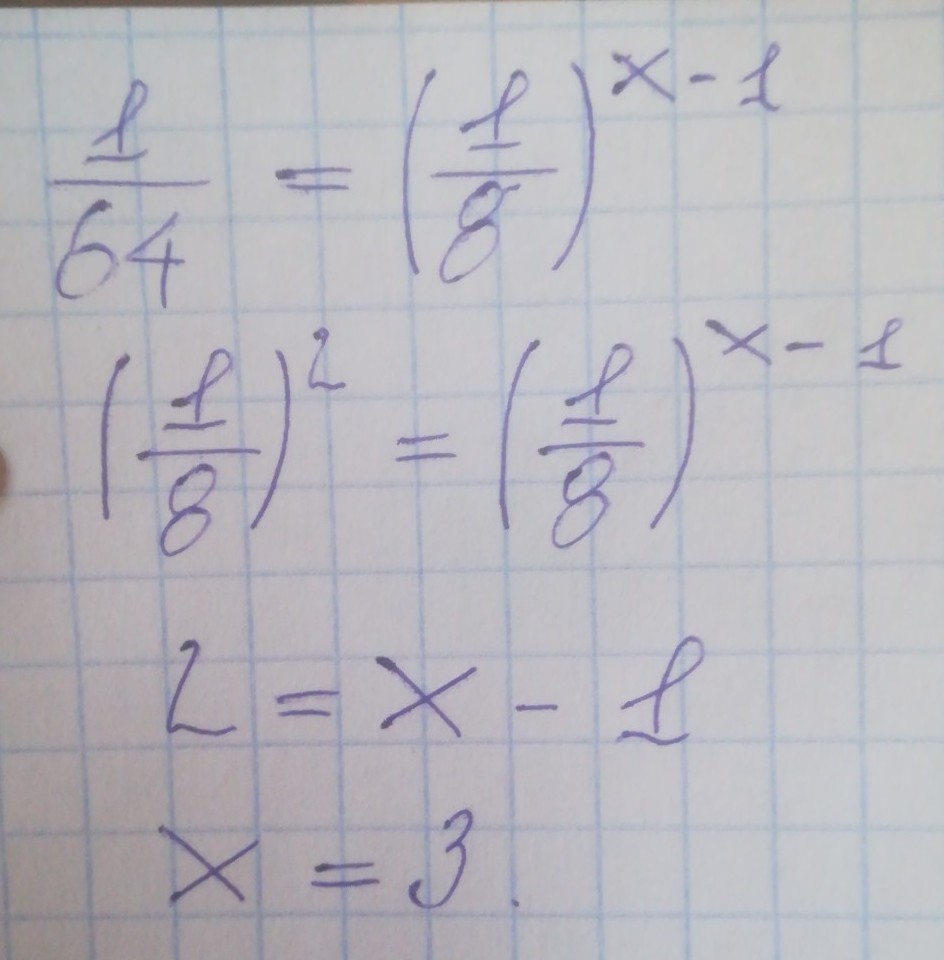 1/64 = (1/8)^(x-1)
(1/8)^2 = (1/8)^(x-1)
2 = x - 1
x = 3.